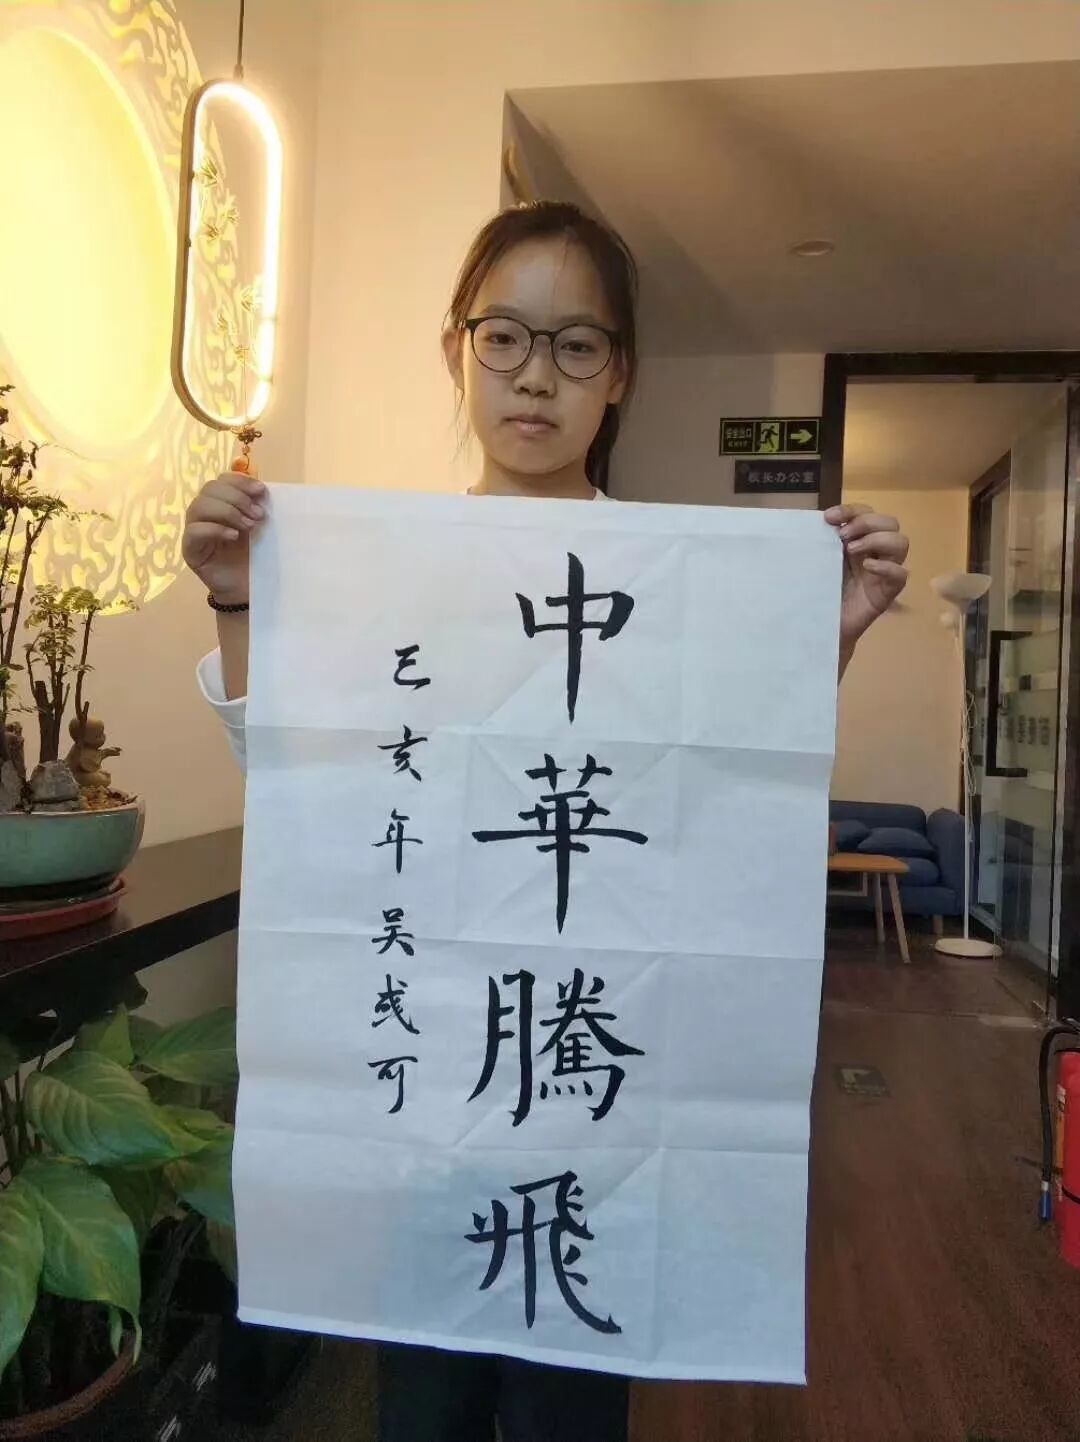 中華騰飛
己亥年吴彧可
安全出口
校长办公室